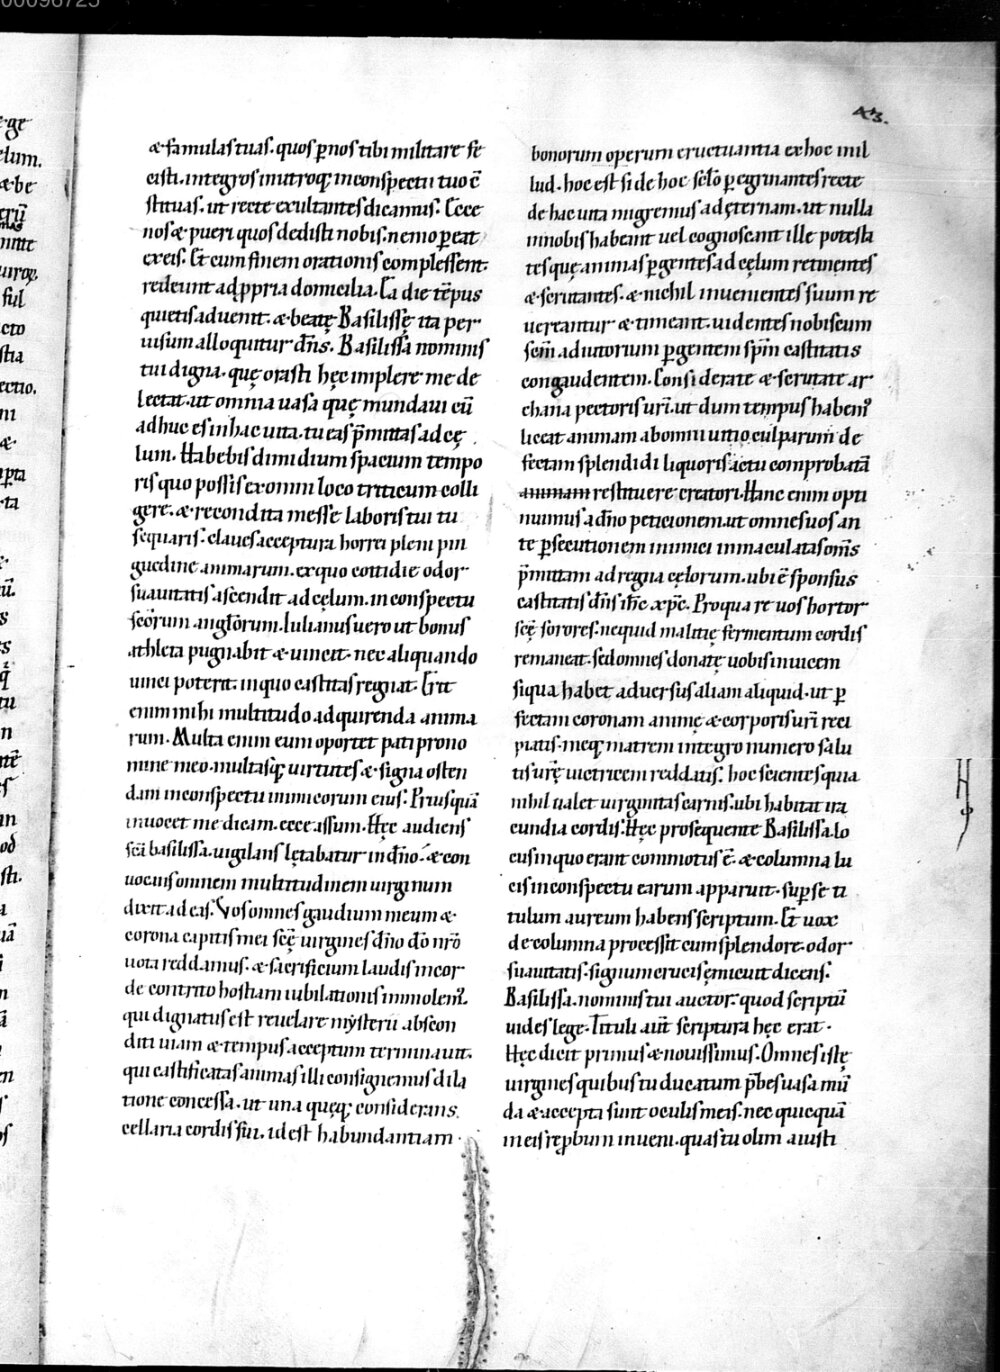 43.
& famulas tuas. quos p̄ nos tibi militare fe
cisti. integros in utroq; in conspectu tuo c̄
stituas. ut recte exultantes dicamus. Ecce
nos & pueri quos dedisti nobis. nemo p̄eat
ex eis. Et cum finem orationis complessent.
redeunt ad p̄pria domicilia. Ea die tēpus
quietis aduenit. & beatę Basilissę ita per
uisum alloquitur dn̄s. Basilissa nominis
tui digna. quę orasti hęc implere me de
lectat. ut omnia uasa quę mundaui cū
adhuc es in hac uita. tu eas p̄mittas ad cę
lum. Habebis dimidium spacium tempo
ris quo possis ex omni loco triticum colli
gere. & recondita messe laboris tui tu
sequaris. claues acceptura horrei pleni pin
guedine animarum. ex quo cottidie odor
suauitatis ascendit ad cęlum. in conspectu
sc̄orum anglorum. Iulianus uero ut bonus
athleta pugnabit & uincet. nec aliquando
uinci poterit. in quo castitas regnat. Erit
enim mihi multitudo adquirenda anima
rum. Multa enim eum oportet pati pro no
mine meo. multasq; uirtutes & signa osten
dam in conspectu inimicorum eius. Priusquā
inuocet me dicam. ecce assum. Hęc audiens
sc̄a basilissa. uigilans lętabatur in dn̄o. & con
uocuis omnem multitudinem uirginum
dixit ad eas. Vos omnes gaudium meum &
corona capitis mei sc̄ę uirgines dn̄o dō nr̄o
uota reddamus. & sacrificium laudis in cor
de contrito hostiam iubilationis immolem;
qui dignatus est reuelare mysterii abscon
diti uiam & tempus acceptum terminauit.
qui castificatas animas illi consignemus dila
tione concessa. ut una quęq; considerans
cellaria cordis sui. id est habundantiam
bonorum operum eructuantia ex hoc in il
lud. hoc est si de hoc sc̄lo p̄egrinantes recte
de hac uita migremus ad ęternam. ut nulla
in nobis habeant uel cognoscant ille potesta
tes quę animas p̄gentes ad cęlum retinentes
& scrutantes. & nichil inuenientes suum re
uereantur & timeant. uidentes nobiscum
sc̄m adiutorium p̄gentem sp̄m castitatis
congaudentem. Considerate & scrutate ar
chana pectoris ur̄i. ut dum tempus habem;
liceat animam ab omni uitio culparum de
fectam splendidi liquoris ictu comprobatā
animam restituere creatori. Hanc enim opti
nuimus a dn̄o peticionem. ut omnes uos an
te p̄secutionem inimici inmaculatas om̄s
p̄mittam ad regna cęlorum. ubi ē sponsus
castitatis dn̄s ih̄c xp̄c. Pro qua re uos hortor
sc̄ę sorores. nequid malitię fermentum cordis
remaneat. sed omnes donate uobis inuicem
siqua habet aduersus aliam aliquid. ut p̄
fectam coronam animę & corporis ur̄i reci
piatis. meq; matrem integro numero salu
tis ur̄ę uictricem reddatis. hoc scientes quia
nihil ualet uirginitas carnis. ubi habitat ira
cundia cordis. Hęc prosequente Basilissa. lo
cus in quo erant commotus ē. & columna lu
cis in conspectu earum apparuit. sup̄ se ti
tulum aureum habens scriptum. Et uox
de columna processit cum splendore. odor
suauitatis. signum crucis ęmicuit dicens.
Basilissa. nominis tui auctor. quod scriptū
uides lege. Tituli aut̄ scriptura hęc erat.
Hęc dicit primus & nouissimus. Omnes istę
uirgines quibus tu ducatum p̄bes uasa mū
da & accepta sunt oculis meis. nec quicquā
in eis rep̄bum inueni. quas tu olim a iusti